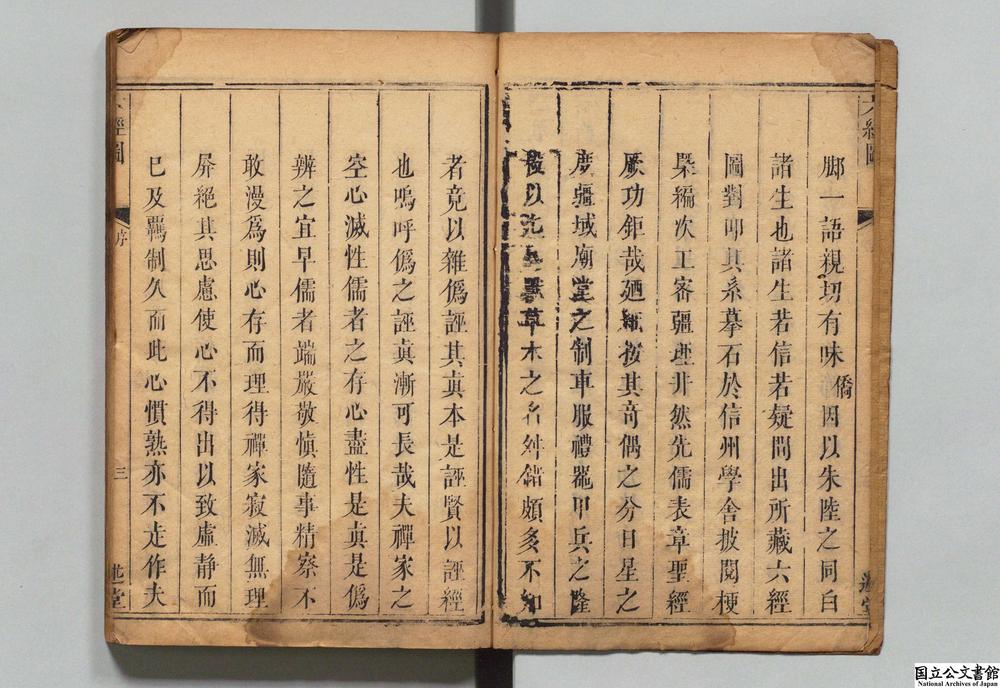 六經圖
脚一語親切有味僑因以朱陸之同白
諸生也諸生若信若疑間出所藏六經
圖對叩其系摹石於信州學舍披閱梗
槩編次工審疆理井然先儒表章聖經
厥功鉅哉廼細按其奇偶之分日星之
廣疆域廟堂之制車服禮器甲兵之隆
殺以迄鳥獸草木之名舛錯頗多不知
者竟以雜僞誣其眞本是誣賢以誣經
也嗚呼僞之誣眞漸可長哉夫禪家之
空心滅性儒者之存心盡性是眞是僞
辨之宜早儒者端嚴敬愼隨事精察不
敢漫爲則心存而理得禪家寂滅無理
屏絕其思慮使心不得出以致虛静而
已及羈制久而此心慣熟亦不走作夫
經圖 序 三 堂
国立公文書館
National Archives of Japan